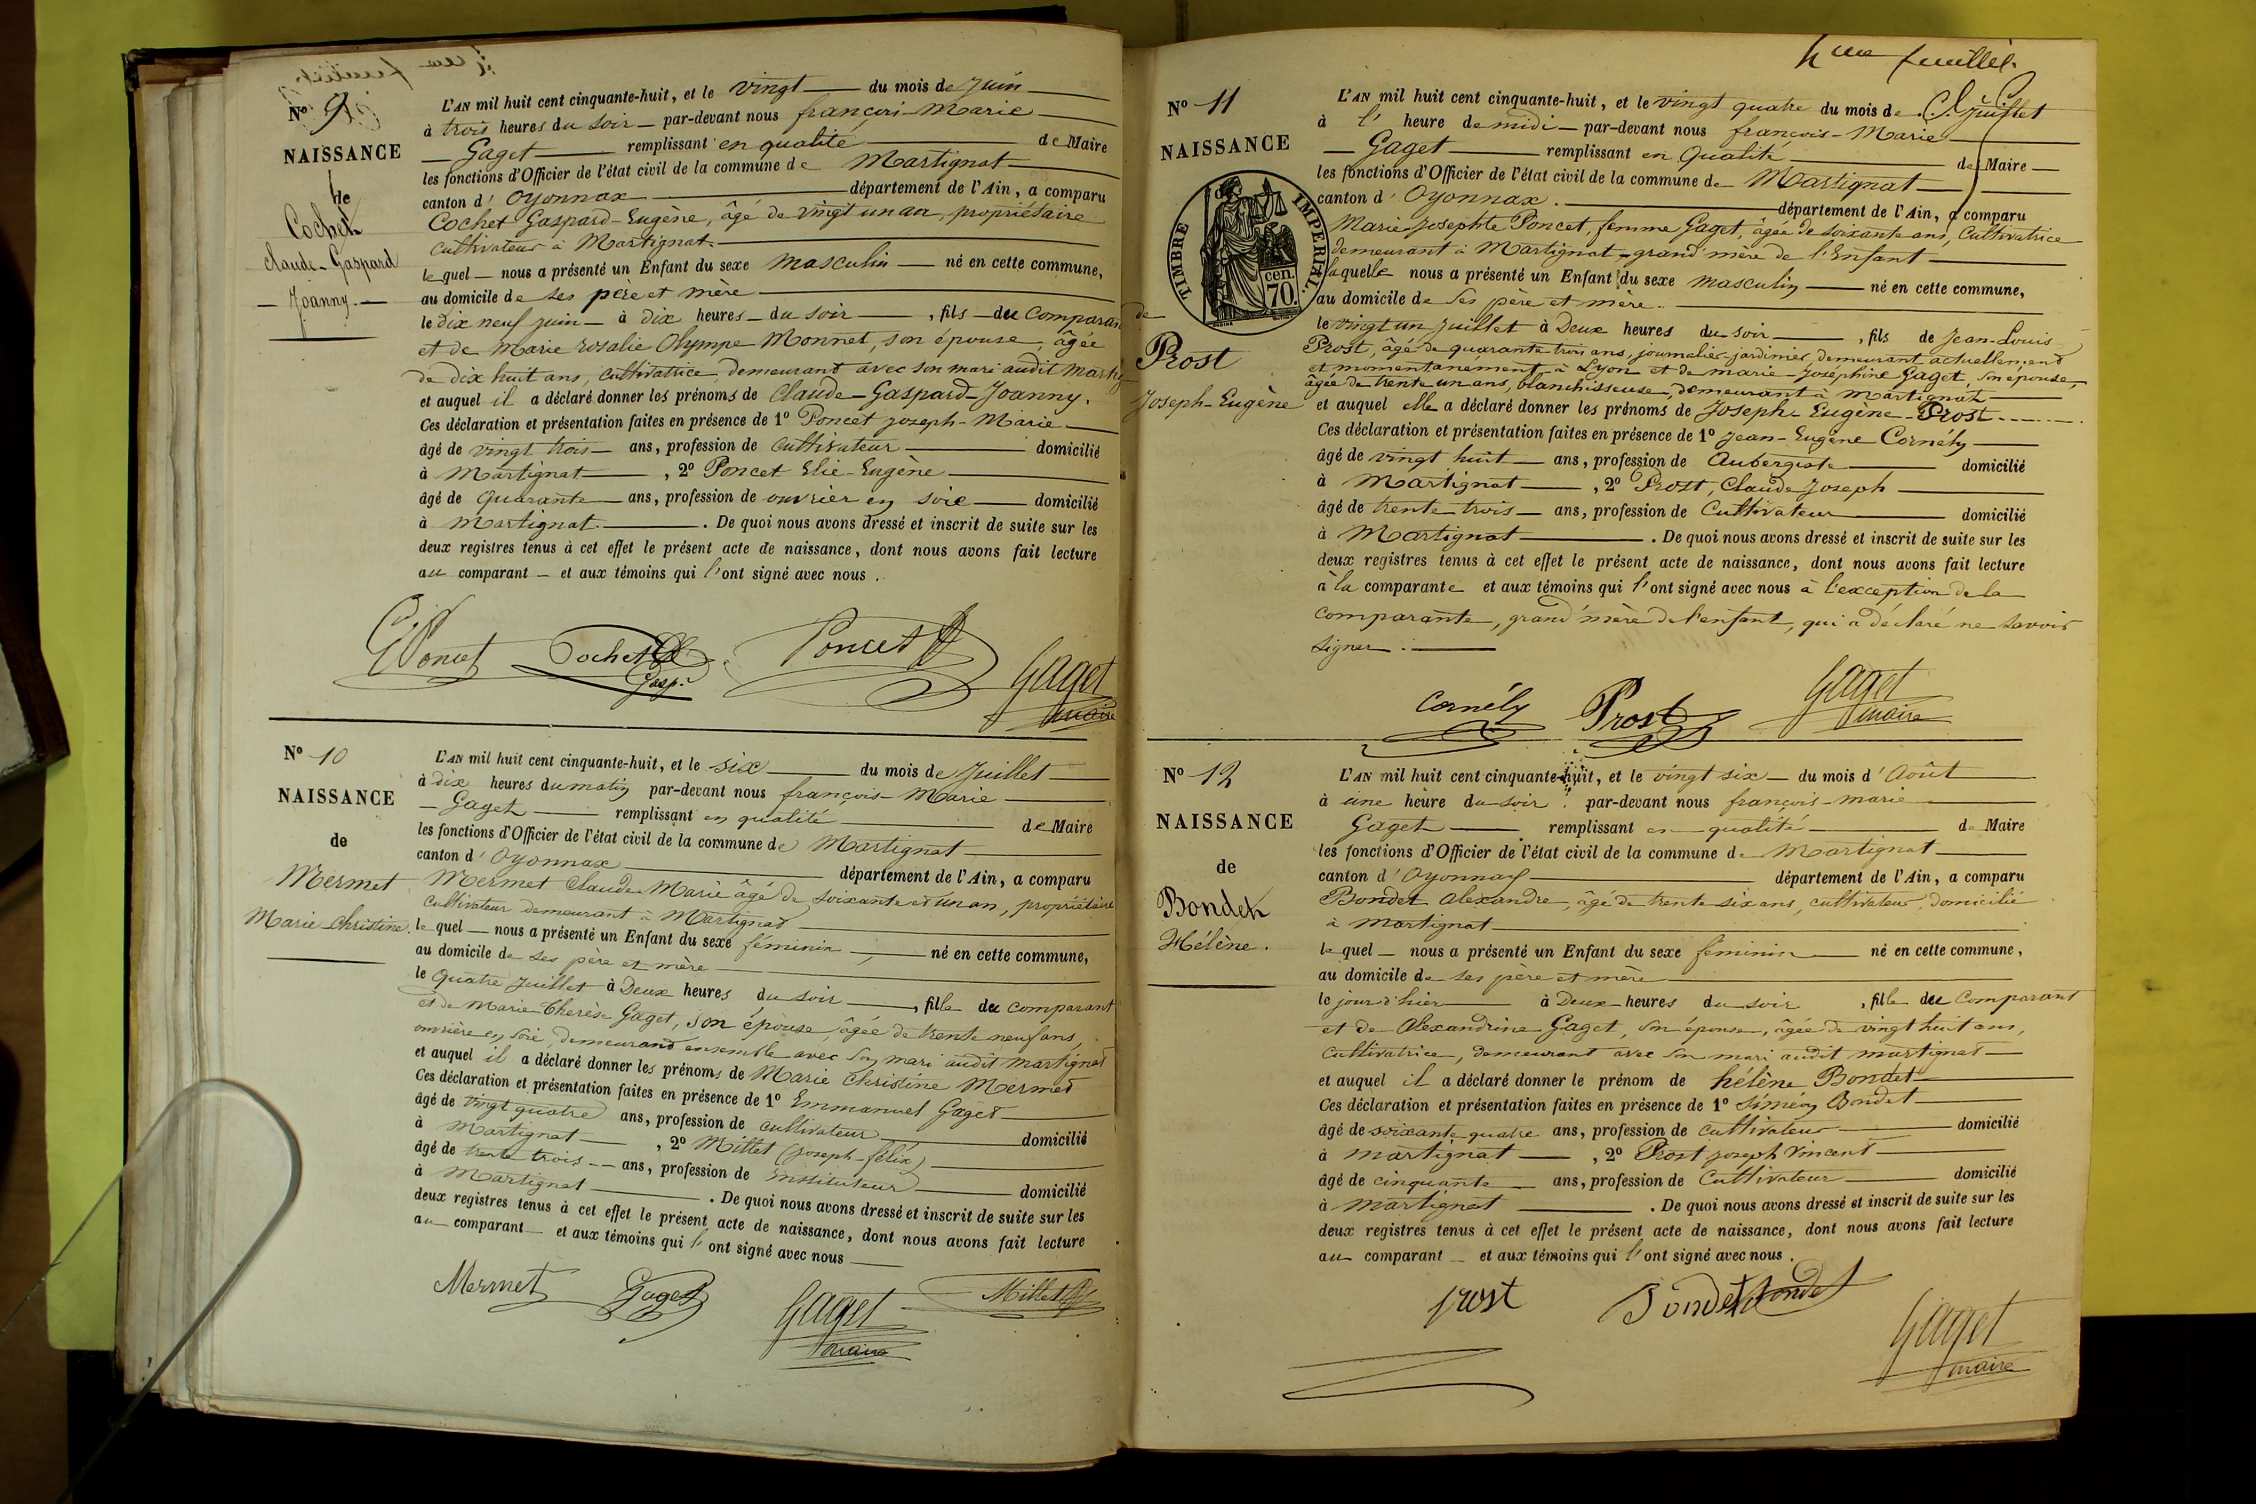 N° 9
NAISSANCE
de
Cochet
Claude-Gaspard
Joanny.
L'AN mil huit cent cinquante-huit, et le vingt du mois de Juin
à trois heures du soir par-devant nous françois-Marie
Gaget remplissant en qualité de Maire
les fonctions d'Officier de l'état civil de la commune de Martignat
canton d'Oyonnax département de l'Ain, a comparu
Cochet Gaspard-Eugène, âgé de vingt un an, propriétaire
cultivateur à Martignat.
lequel nous a présenté un Enfant du sexe masculin né en cette commune,
au domicile de ses père et mère
le dix neuf juin à dix heures du soir, fils du comparant
et de Marie rosalie Olympe Monnet, son épouse, âgée
de dix huit ans, cultivatrice, demeurant avec son mari audit
et auquel il a déclaré donner les prénoms de Claude-Gaspard-Joanny.
Ces déclaration et présentation faites en présence de 1° Poncet joseph-Marie
âgé de vingt trois ans, profession de cultivateur domicilié
à Martignat, 2° Poncet Elie-Eugène
âgé de quarante ans, profession de ouvrier en soie domicilié
à Martignat. De quoi nous avons dressé et inscrit de suite sur les
deux registres tenus à cet effet le présent acte de naissance, dont nous avons fait lecture
au comparant et aux témoins qui l'ont signé avec nous.
Poncet Cochet Gasp. Poncet Gaget
maire
N° 10
NAISSANCE
de
Mermet
Marie Christine.
L'AN mil huit cent cinquante-huit, et le six du mois de Juillet
à dix heures du matin par-devant nous françois-Marie
Gaget remplissant en qualité de Maire
les fonctions d'Officier de l'état civil de la commune de Martignat
canton d'Oyonnax département de l'Ain, a comparu
Mermet Claude Marie âgé de soixante et un an, propriétaire
cultivateur demeurant à Martignat
lequel nous a présenté un Enfant du sexe féminin né en cette commune,
au domicile de ses père et mère
le quatre juillet à Deux heures du soir, fille du comparant
et de Marie Therèse Gaget, son épouse, âgée de trente neuf ans,
ouvrière en soie, demeurant ensemble avec son mari audit martignat
et auquel il a déclaré donner les prénoms de Marie Christine Mermet
Ces déclaration et présentation faites en présence de 1° Emmanuel Gaget
âgé de vingt quatre ans, profession de cultivateur domicilié
à Martignat, 2° Millet (joseph-félix)
âgé de trente trois ans, profession de instituteur domicilié
à Martignat. De quoi nous avons dressé et inscrit de suite sur les
deux registres tenus à cet effet le présent acte de naissance, dont nous avons fait lecture
au comparant et aux témoins qui l'ont signé avec nous
Mermet Gaget Gaget Millet
maire
4me feuillet.
N° 11
NAISSANCE
TIMBRE IMPERIAL
cen.
70.
de
Prost
Joseph-Eugène
L'AN mil huit cent cinquante-huit, et le vingt quatre du mois de Juillet
à l'heure de midi par-devant nous françois-Marie
Gaget remplissant en Qualité de Maire
les fonctions d'Officier de l'état civil de la commune de Martignat
canton d'Oyonnax. département de l'Ain, a comparu
Marie Josephte Poncet, femme Gaget, âgée de soixante ans, Cultivatrice
demeurant à Martignat, grand'mère de l'Enfant
laquelle nous a présenté un Enfant du sexe masculin né en cette commune,
au domicile de ses père et mère.
le vingt un juillet à Deux heures du soir, fils de Jean-Louis
Prost, âgé de quarante trois ans, journalier-jardinier, demeurant actuellement
et momentanément à Lyon et de marie-Joséphine Gaget, son épouse
âgée de trente un ans, blanchisseuse, demeurant à Martignat
et auquel elle a déclaré donner les prénoms de Joseph Eugène Prost
Ces déclaration et présentation faites en présence de 1° Jean-Eugène Cornély
âgé de vingt huit ans, profession de Aubergiste domicilié
à Martignat, 2° Prost, Claude Joseph
âgé de trente trois ans, profession de Cultivateur domicilié
à Martignat. De quoi nous avons dressé et inscrit de suite sur les
deux registres tenus à cet effet le présent acte de naissance, dont nous avons fait lecture
à la comparante et aux témoins qui l'ont signé avec nous à l'exception de la
comparante, grand'mère de l'enfant, qui a déclaré ne savoir
signer.
Cornély Prost Gaget
maire
N° 12
NAISSANCE
de
Bondet
Hélène.
L'AN mil huit cent cinquante-huit, et le vingt six du mois d'Août
à une heure du soir. par-devant nous françois-marie
Gaget remplissant en qualité de Maire
les fonctions d'Officier de l'état civil de la commune de Martignat
canton d'Oyonnax département de l'Ain, a comparu
Bondet Alexandre, âgé de trente six ans, cultivateur, domicilié
à Martignat
lequel nous a présenté un Enfant du sexe féminin né en cette commune,
au domicile de ses père et mère
le jour d'hier à Deux heures du soir, fille du comparant
et de Alexandrine Gaget, son épouse, âgée de vingt huit ans,
Cultivatrice, demeurant avec son mari audit martignat
et auquel il a déclaré donner le prénom de hélène Bondet
Ces déclaration et présentation faites en présence de 1° Siméon Bondet
âgé de soixante quatre ans, profession de cultivateur domicilié
à Martignat, 2° Prost joseph Vincent
âgé de cinquante ans, profession de Cultivateur domicilié
à Martignat. De quoi nous avons dressé et inscrit de suite sur les
deux registres tenus à cet effet le présent acte de naissance, dont nous avons fait lecture
au comparant et aux témoins qui l'ont signé avec nous.
prost Bondet Bondet Gaget
maire